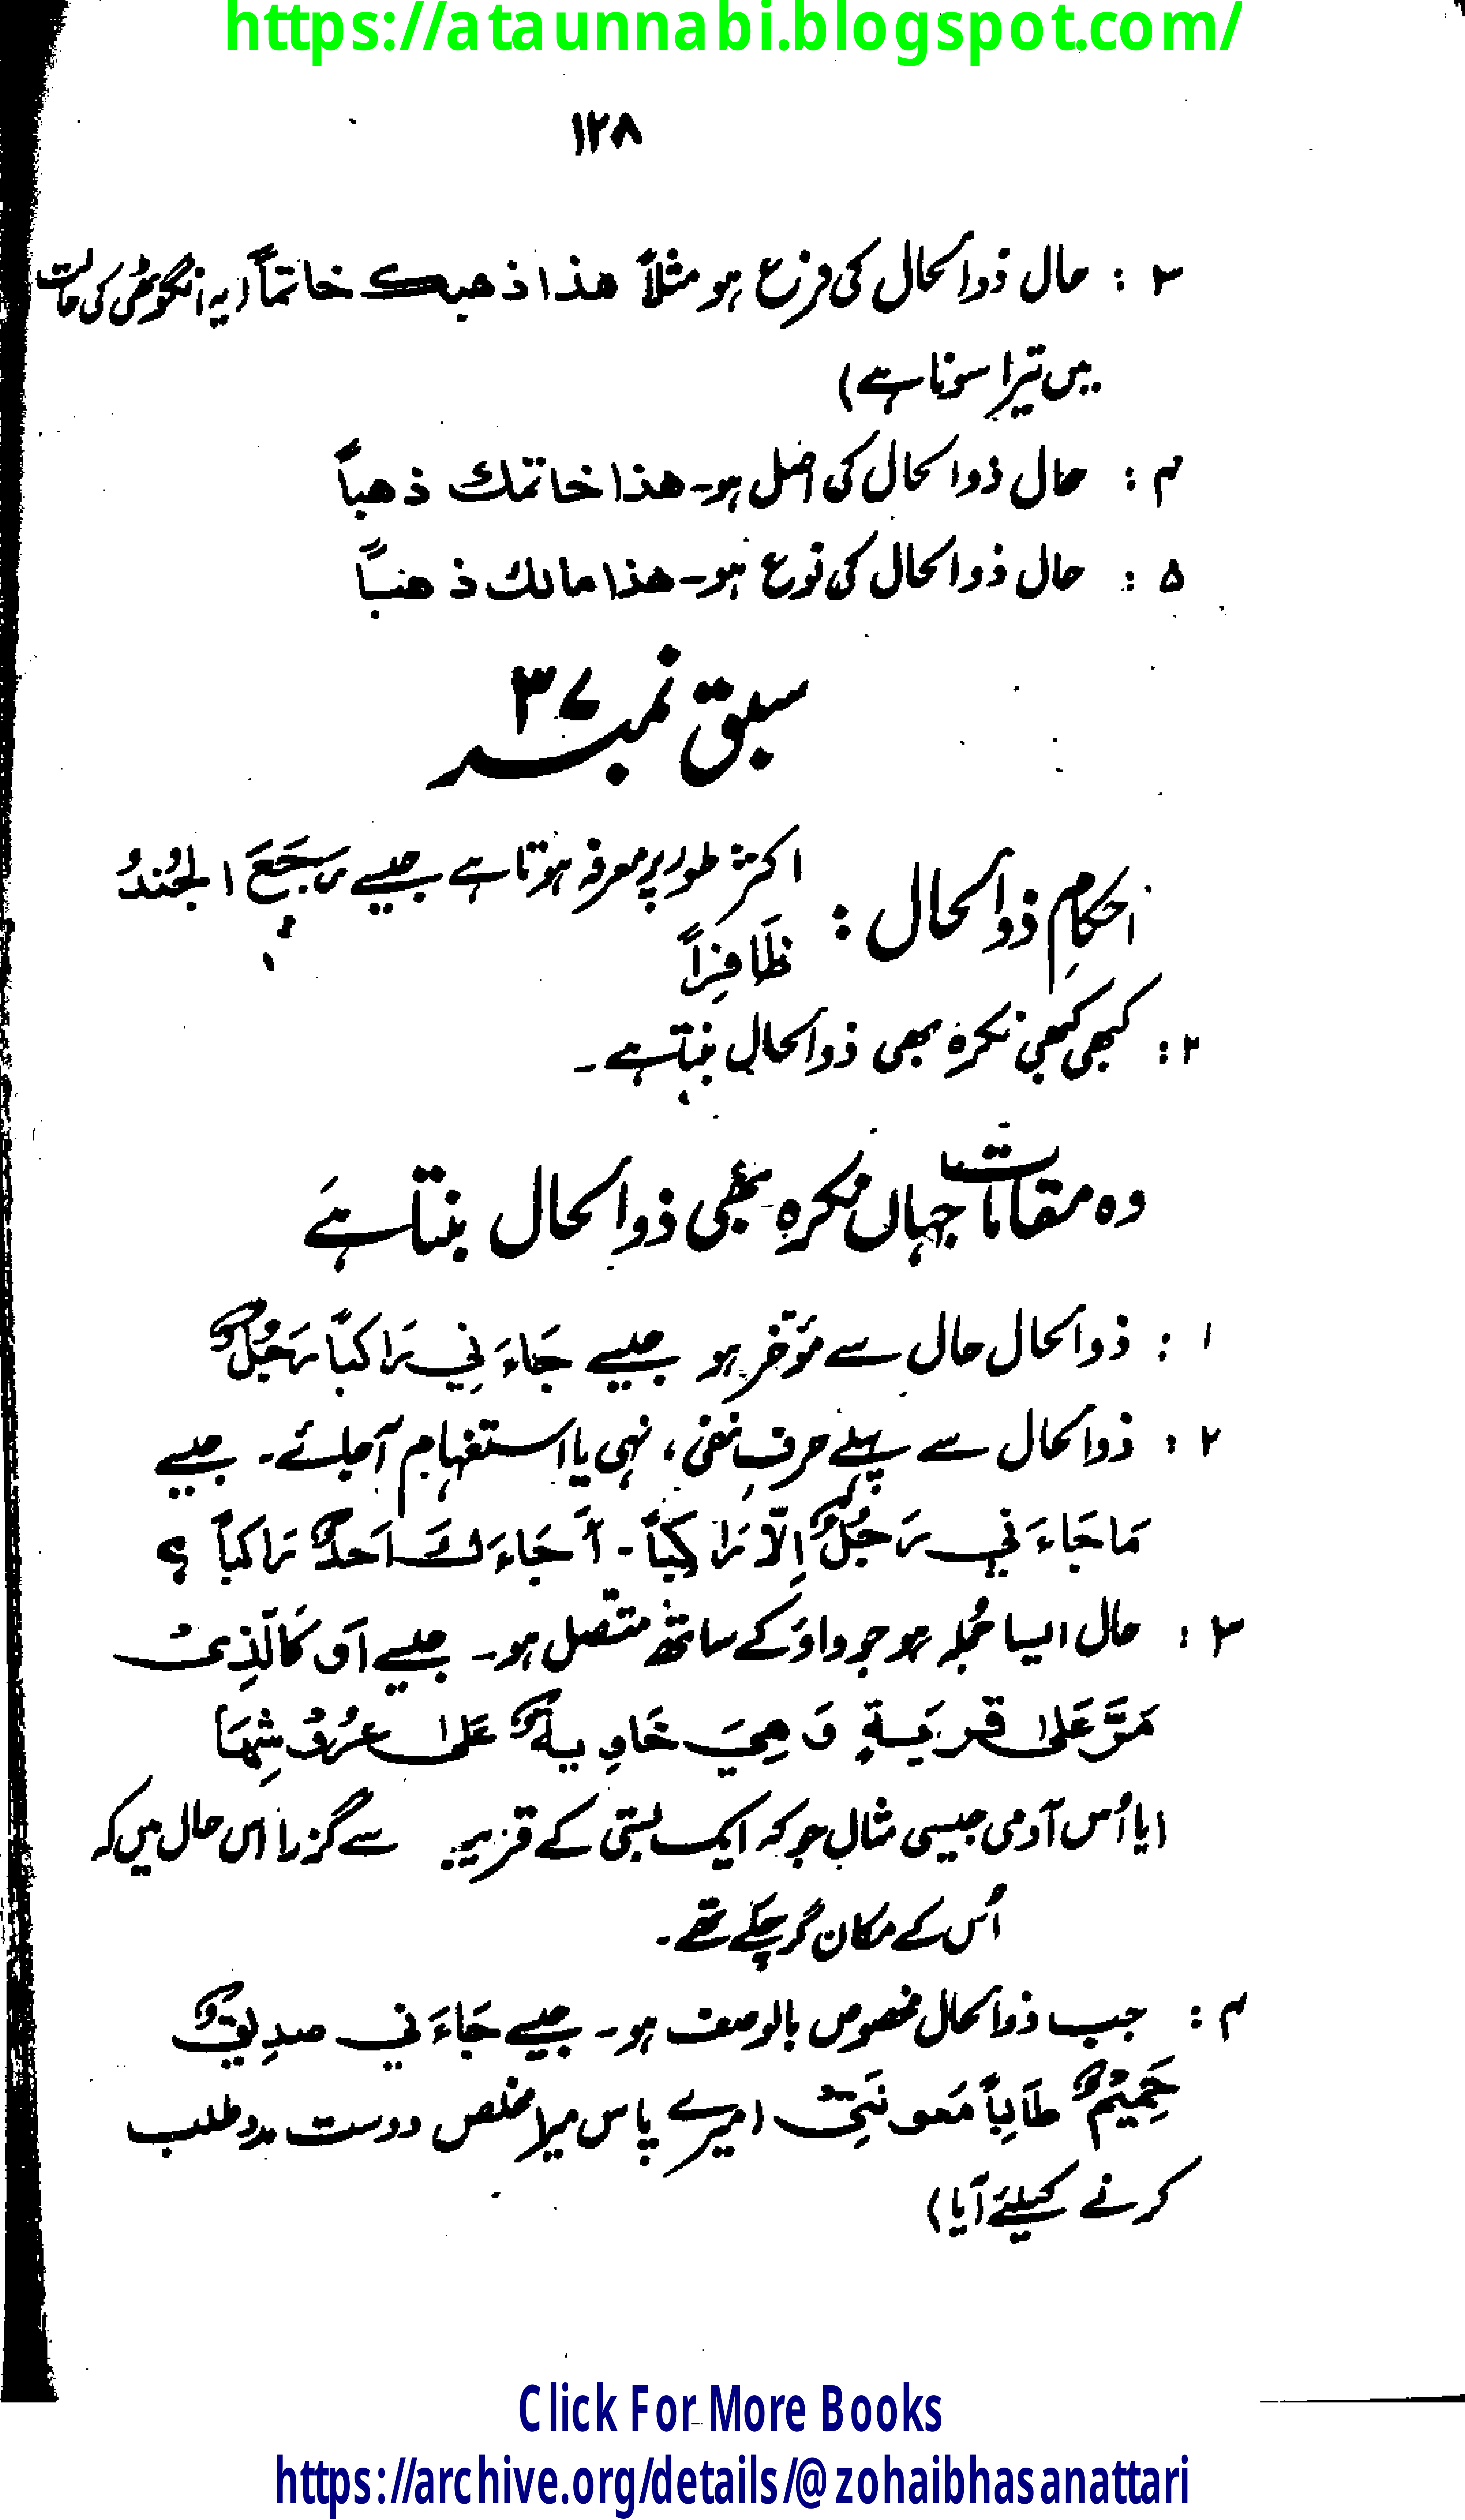 https://ataunnabi.blogspot.com/
۱۲۸
۳ : حال ذوالحال کی فرع ہو مثلاً هذا ذهبك خاتماً (یہ انگوٹھی کی حالت
میں تیرا سونا ہے)
۴ : حال ذوالحال کی اصل ہو۔ هذا خاتمك ذهباً
۵ : حال ذوالحال کی نوع ہو۔ هذا مالك ذهباً
سبق نمبر ۳۷
احکامِ ذوالحال : اکثر طور پر معرفہ ہوتا ہے جیسے رَجَعَ الجُندُ
ظَافِراً
۲ : کبھی کبھی نکرہ بھی ذوالحال بنتا ہے۔
وہ مقامات جہاں نکرہ بھی ذوالحال بنتا ہے
۱ : ذوالحال حال سے مؤخر ہو جیسے جَاءَنِي رَاكباً رَجُلٌ
۲ : ذوالحال سے پہلے حرفِ نفی، نہی یا استفہام آجائے۔ جیسے
مَا جَاءَنِي رَجُلٌ اِلّا رَاكِباً۔ أَجَاءَكَ اَحَدٌ رَاكباً ؟
۳ : حال ایسا جُملہ ہو جو واؤ کے ساتھ متصل ہو۔ جیسے اَو كَالَّذِىْ
مَرَّ عَلىٰ قَريَةٍ وَهِيَ خَاوِيةٌ عَلىٰ عُرُوْشِهَا
(یا اُس آدمی جیسی مثال جو کہ ایک بستی کے قریب سے گزرا اس حال میں کہ
اُس کے مکان گر چکے تھے۔
۴ : جب ذوالحال مخصوص بالوصف ہو۔ جیسے جَاءَنِي صدِيقٌ
حَمِيْمٌ طَالِباً مَعونَتِىْ (میرے پاس میرا مخلص دوست مدد طلب
کرنے کیلئے آیا)
Click For More Books
https://archive.org/details/@zohaibhasanattari